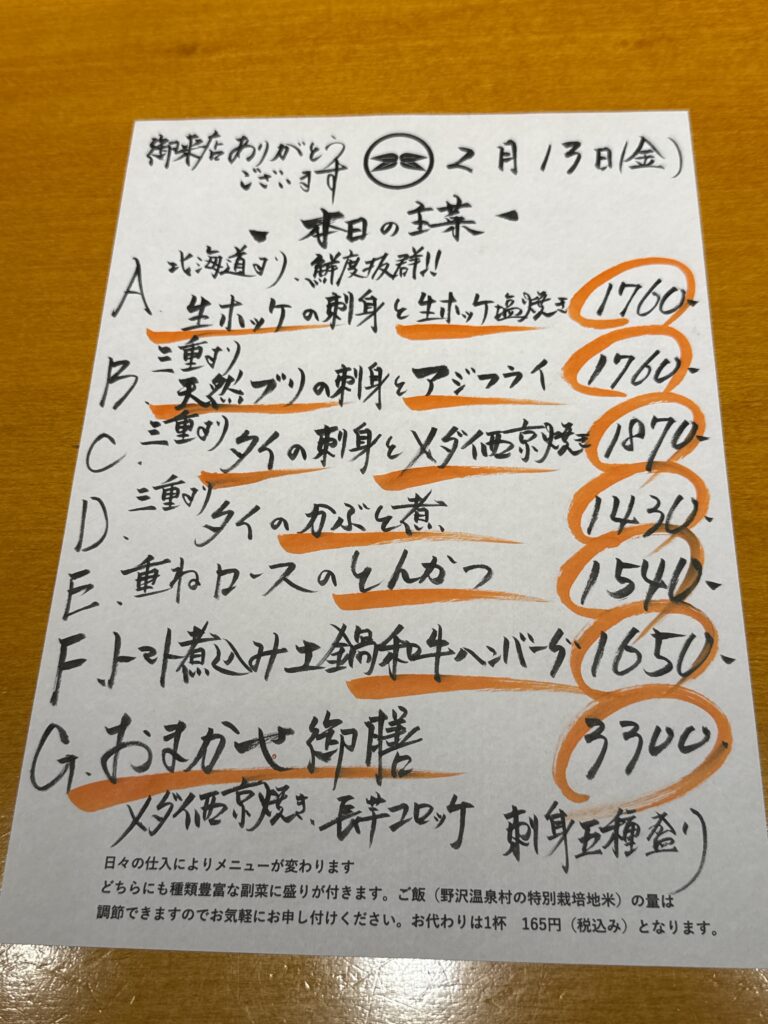 御来店ありがとう
ございます
2月13日(金)
本日の主菜
A 北海道より、鮮度抜群!!
生ホッケの刺身と生ホッケ塩焼き 1760-
B. 三重より
天然ブリの刺身とアジフライ 1760-
C. 三重より タイの刺身とメダイ西京焼き 1870-
D. 三重より タイのかぶと煮 1430-
E. 重ねロースのとんかつ 1540-
F. トマト煮込み土鍋和牛ハンバーグ 1650-
G. おまかせ御膳 3300-
メダイ西京焼き、長芋コロッケ 刺身五種盛り
日々の仕入によりメニューが変わります
どちらにも種類豊富な副菜に盛りが付きます。ご飯(野沢温泉村の特別栽培地米)の量は
調節できますのでお気軽にお申し付けください。お代わりは1杯 165円(税込み)となります。